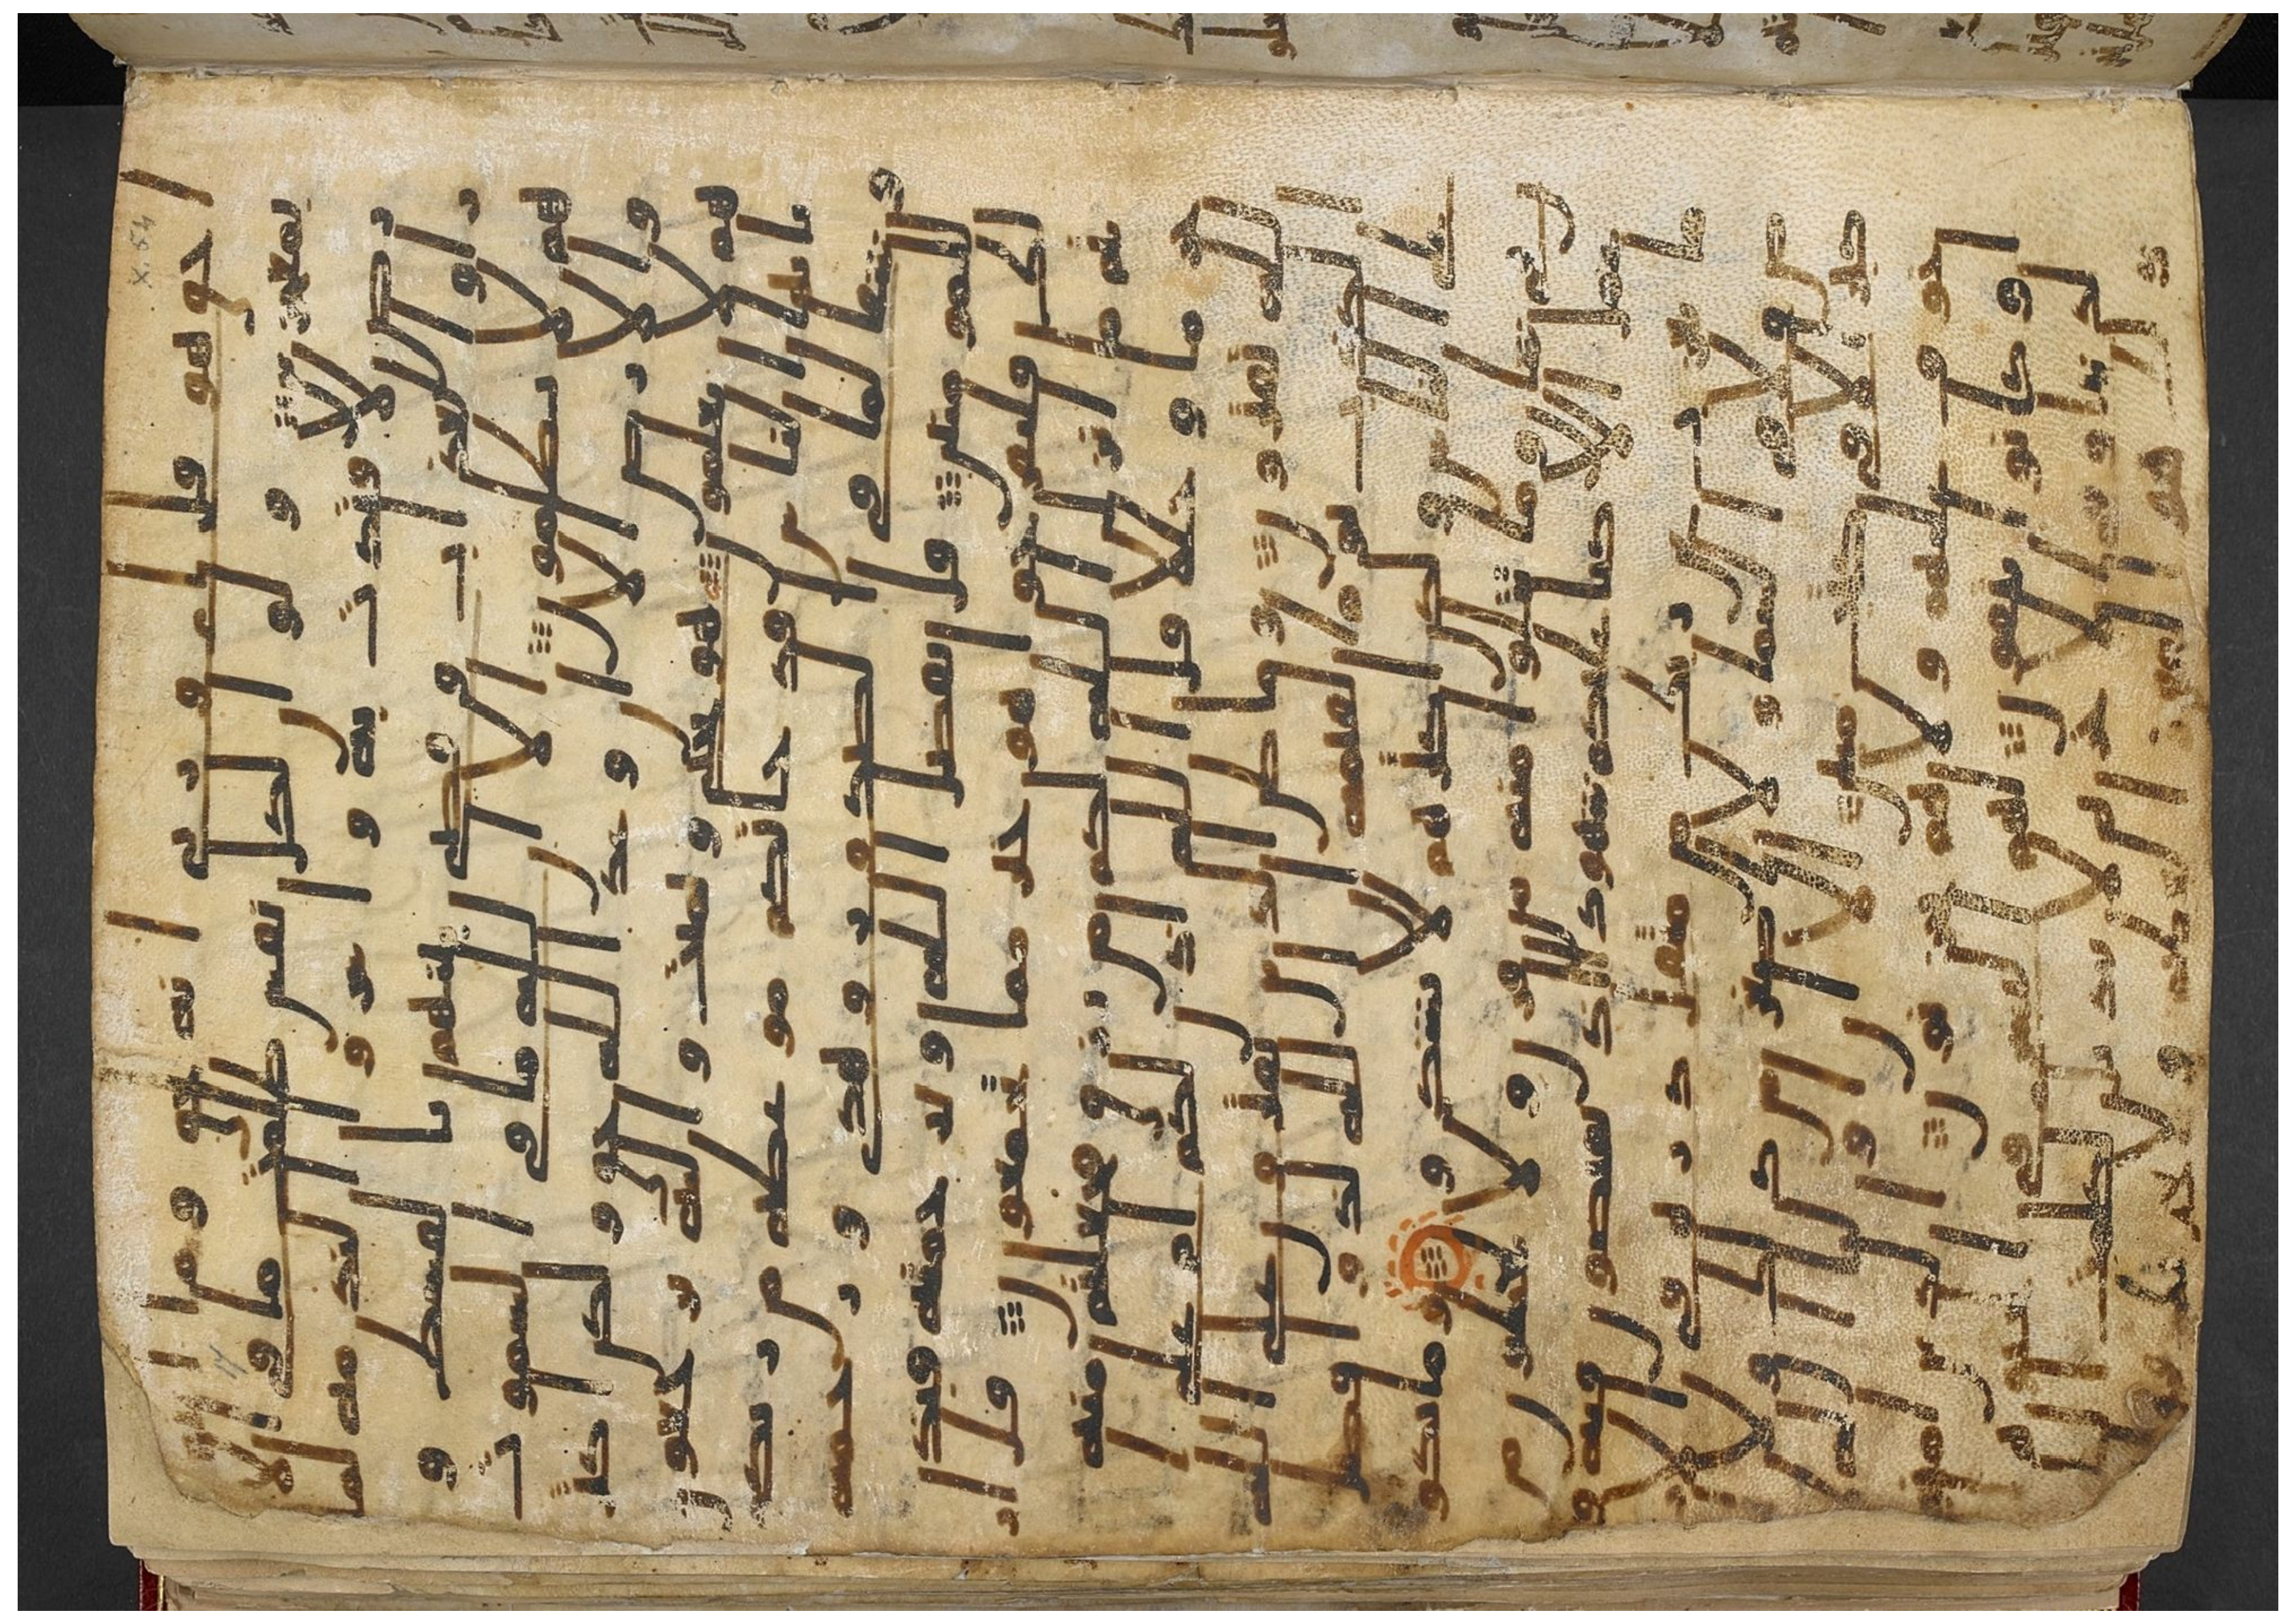 X. 54
احق هو قل اى وربى انه لحق وما انتم
بمعجزين ولو ان لكل نفس ظلمت ما فى الا
رض لافتدت به واسروا الندمه لما
راوا العذاب وقضى بينهم بالقسط و
هم لا يظلمون الا ان لله ما فى السموت
والارض الا ان وعد الله حق ولكن اكثر
هم لا يعلمون هو يحى ويميت واليه ترجعون
يايها الناس قد جاتكم موعظه من ربكم
وشفا لما فى الصدور وهدى ورحمه
للمومنين قل بفضل الله وبرحمته فبذ
لك فليفرحوا هو خير مما يجمعون قل ا
ريتم ما انزل الله لكم من رزق فجعلتم منه
حراما وحللا قل الله اذن لكم ام على
الله تفترون وما ظن الذين يفترون على الله
الكذب يوم القيمه ان الله لذو فضل
على الناس ولكن اكثرهم لا يشكرون وما تكو
ن فى شان وما تتلوا منه من قران ولا تعملون من
عمل الا كنا عليكم شهودا اذ تفيضون فيه و
ما يعزب عن ربك من مثقل ذره فى الا
رض ولا فى السما ولا اصغر من ذلك ولا
اكبر الا فى كتب مبين الا ان اوليا
الله لا خوف عليهم ولا هم يحزنون الذين امنو
ا وكانوا يتقون لهم البشرى فى الحيوه
الدنيا وفى الاخره لا تبديل لكلمت ا
لله ذلك هو الفوز العظيم ولا يحزنك قو